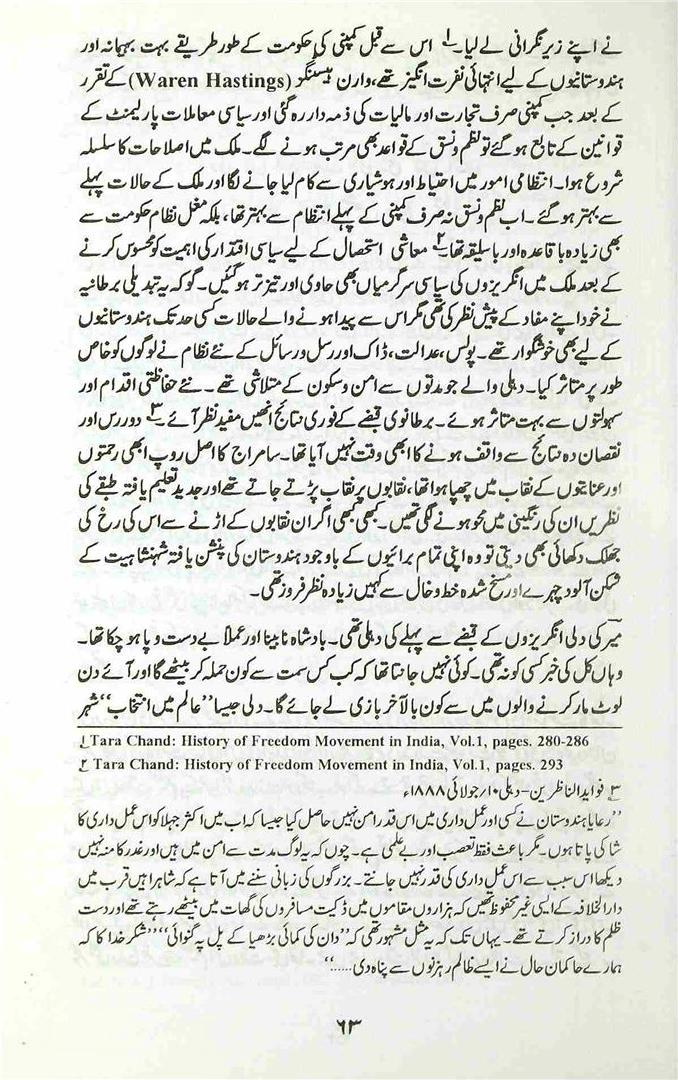 نے اپنے زیر نگرانی لے لیا۔۱ اس سے قبل کمپنی کی حکومت کے طور طریقے بہت بہیمانہ اور
ہندوستانیوں کے لیے انتہائی نفرت انگیز تھے، وارن ہیسٹنگز (Waren Hastings) کے تقرر
کے بعد جب کمپنی صرف تجارت اور مالیات کی ذمہ دار رہ گئی اور سیاسی معاملات پارلیمنٹ کے
قوانین کے تابع ہو گئے تو نظم و نسق کے قواعد بھی مرتب ہونے لگے۔ ملک میں اصلاحات کا سلسلہ
شروع ہوا۔ انتظامی امور میں احتیاط اور ہوشیاری سے کام لیا جانے لگا اور ملک کے حالات پہلے
سے بہتر ہو گئے۔ اب نظم و نسق نہ صرف کمپنی کے پہلے انتظام سے بہتر تھا، بلکہ مغل نظام حکومت سے
بھی زیادہ با قاعدہ اور با سلیقہ تھا۔۲ معاشی استحصال کے لیے سیاسی اقتدار کی اہمیت کو محسوس کرنے
کے بعد ملک میں انگریزوں کی سیاسی سرگرمیاں بھی حاوی اور تیز تر ہو گئیں۔ گو کہ یہ تبدیلی برطانیہ
نے خود اپنے مفاد کے پیش نظر کی تھی مگر اس سے پیدا ہونے والے حالات کسی حد تک ہندوستانیوں
کے لیے بھی خوشگوار تھے۔ پولس، عدالت، ڈاک اور رسل و رسائل کے نئے نظام نے لوگوں کو خاص
طور پر متاثر کیا۔ دہلی والے جو مدتوں سے امن و سکون کے متلاشی تھے۔ نئے حفاظتی اقدام اور
سہولتوں سے بہت متاثر ہوئے۔ برطانوی قبضے کے فوری نتائج انھیں مفید نظر آئے۔۳ دور رس اور
نقصان دہ نتائج سے واقف ہونے کا ابھی وقت نہیں آیا تھا۔ سامراج کا اصل روپ ابھی رحمتوں
اور عنایتوں کے نقاب میں چھپا ہوا تھا، نقابوں پر نقاب پڑتے جاتے تھے اور جدید تعلیم یافتہ طبقے کی
نظریں ان کی رنگینی میں محو ہونے لگی تھیں۔ کبھی کبھی اگر ان نقابوں کے اڑنے سے اس کی رخ کی
جھلک دکھائی بھی دیتی تو وہ اپنی تمام برائیوں کے باوجود ہندوستان کی پنشن یافتہ شہنشاہیت کے
شکن آلود چہرے اور مسخ شدہ خط و خال سے کہیں زیادہ نظر فروز تھی۔
میر کی دلی انگریزوں کے قبضے سے پہلے کی دہلی تھی۔ بادشاہ نابینا اور عملاً بے دست و پا ہو چکا تھا۔
وہاں کل کی خبر کسی کو نہ تھی۔ کوئی نہیں جانتا تھا کہ کب کس سمت سے کون حملہ کر بیٹھے گا اور آئے دن
لوٹ مار کرنے والوں میں سے کون بالآخر بازی لے جائے گا۔ دلی جیسا ''عالم میں انتخاب'' شہر
۱ Tara Chand: History of Freedom Movement in India, Vol.1, pages. 280-286
۲ Tara Chand: History of Freedom Movement in India, Vol.1, pages. 293
۳ فواید الناظرین- دہلی ۱۰/جولائی ۱۸۸۸ء
''رعایا ہندوستان نے کسی اور عمل داری میں اس قدر امن نہیں حاصل کیا جیسا کہ اب میں اکثر جہلا کو اس عمل داری کا
شا کی پاتا ہوں۔ مگر باعث فقط تعصب اور بے علمی ہے۔ چوں کہ یہ لوگ مدت سے امن میں ہیں اور غدر کا منہ نہیں
دیکھا اس سبب سے اس عمل داری کی قدر نہیں جانتے۔ بزرگوں کی زبانی سننے میں آتا ہے کہ شاہراہیں قرب میں
دارالخلافہ کے ایسی غیر محفوظ تھیں کہ ہزاروں مقاموں میں ڈکیت مسافروں کی گھات میں بیٹھے رہتے تھے اور دست
ظلم کا دراز کرتے تھے۔ یہاں تک کہ یہ مثل مشہور تھی کہ ''دان کی کمائی بڑھیا کے پل پہ گنوائی'' ''شکر خدا کا کہ
ہمارے حاکمان حال نے ایسے ظالم رہزنوں سے پناہ دی.....''
۶۳